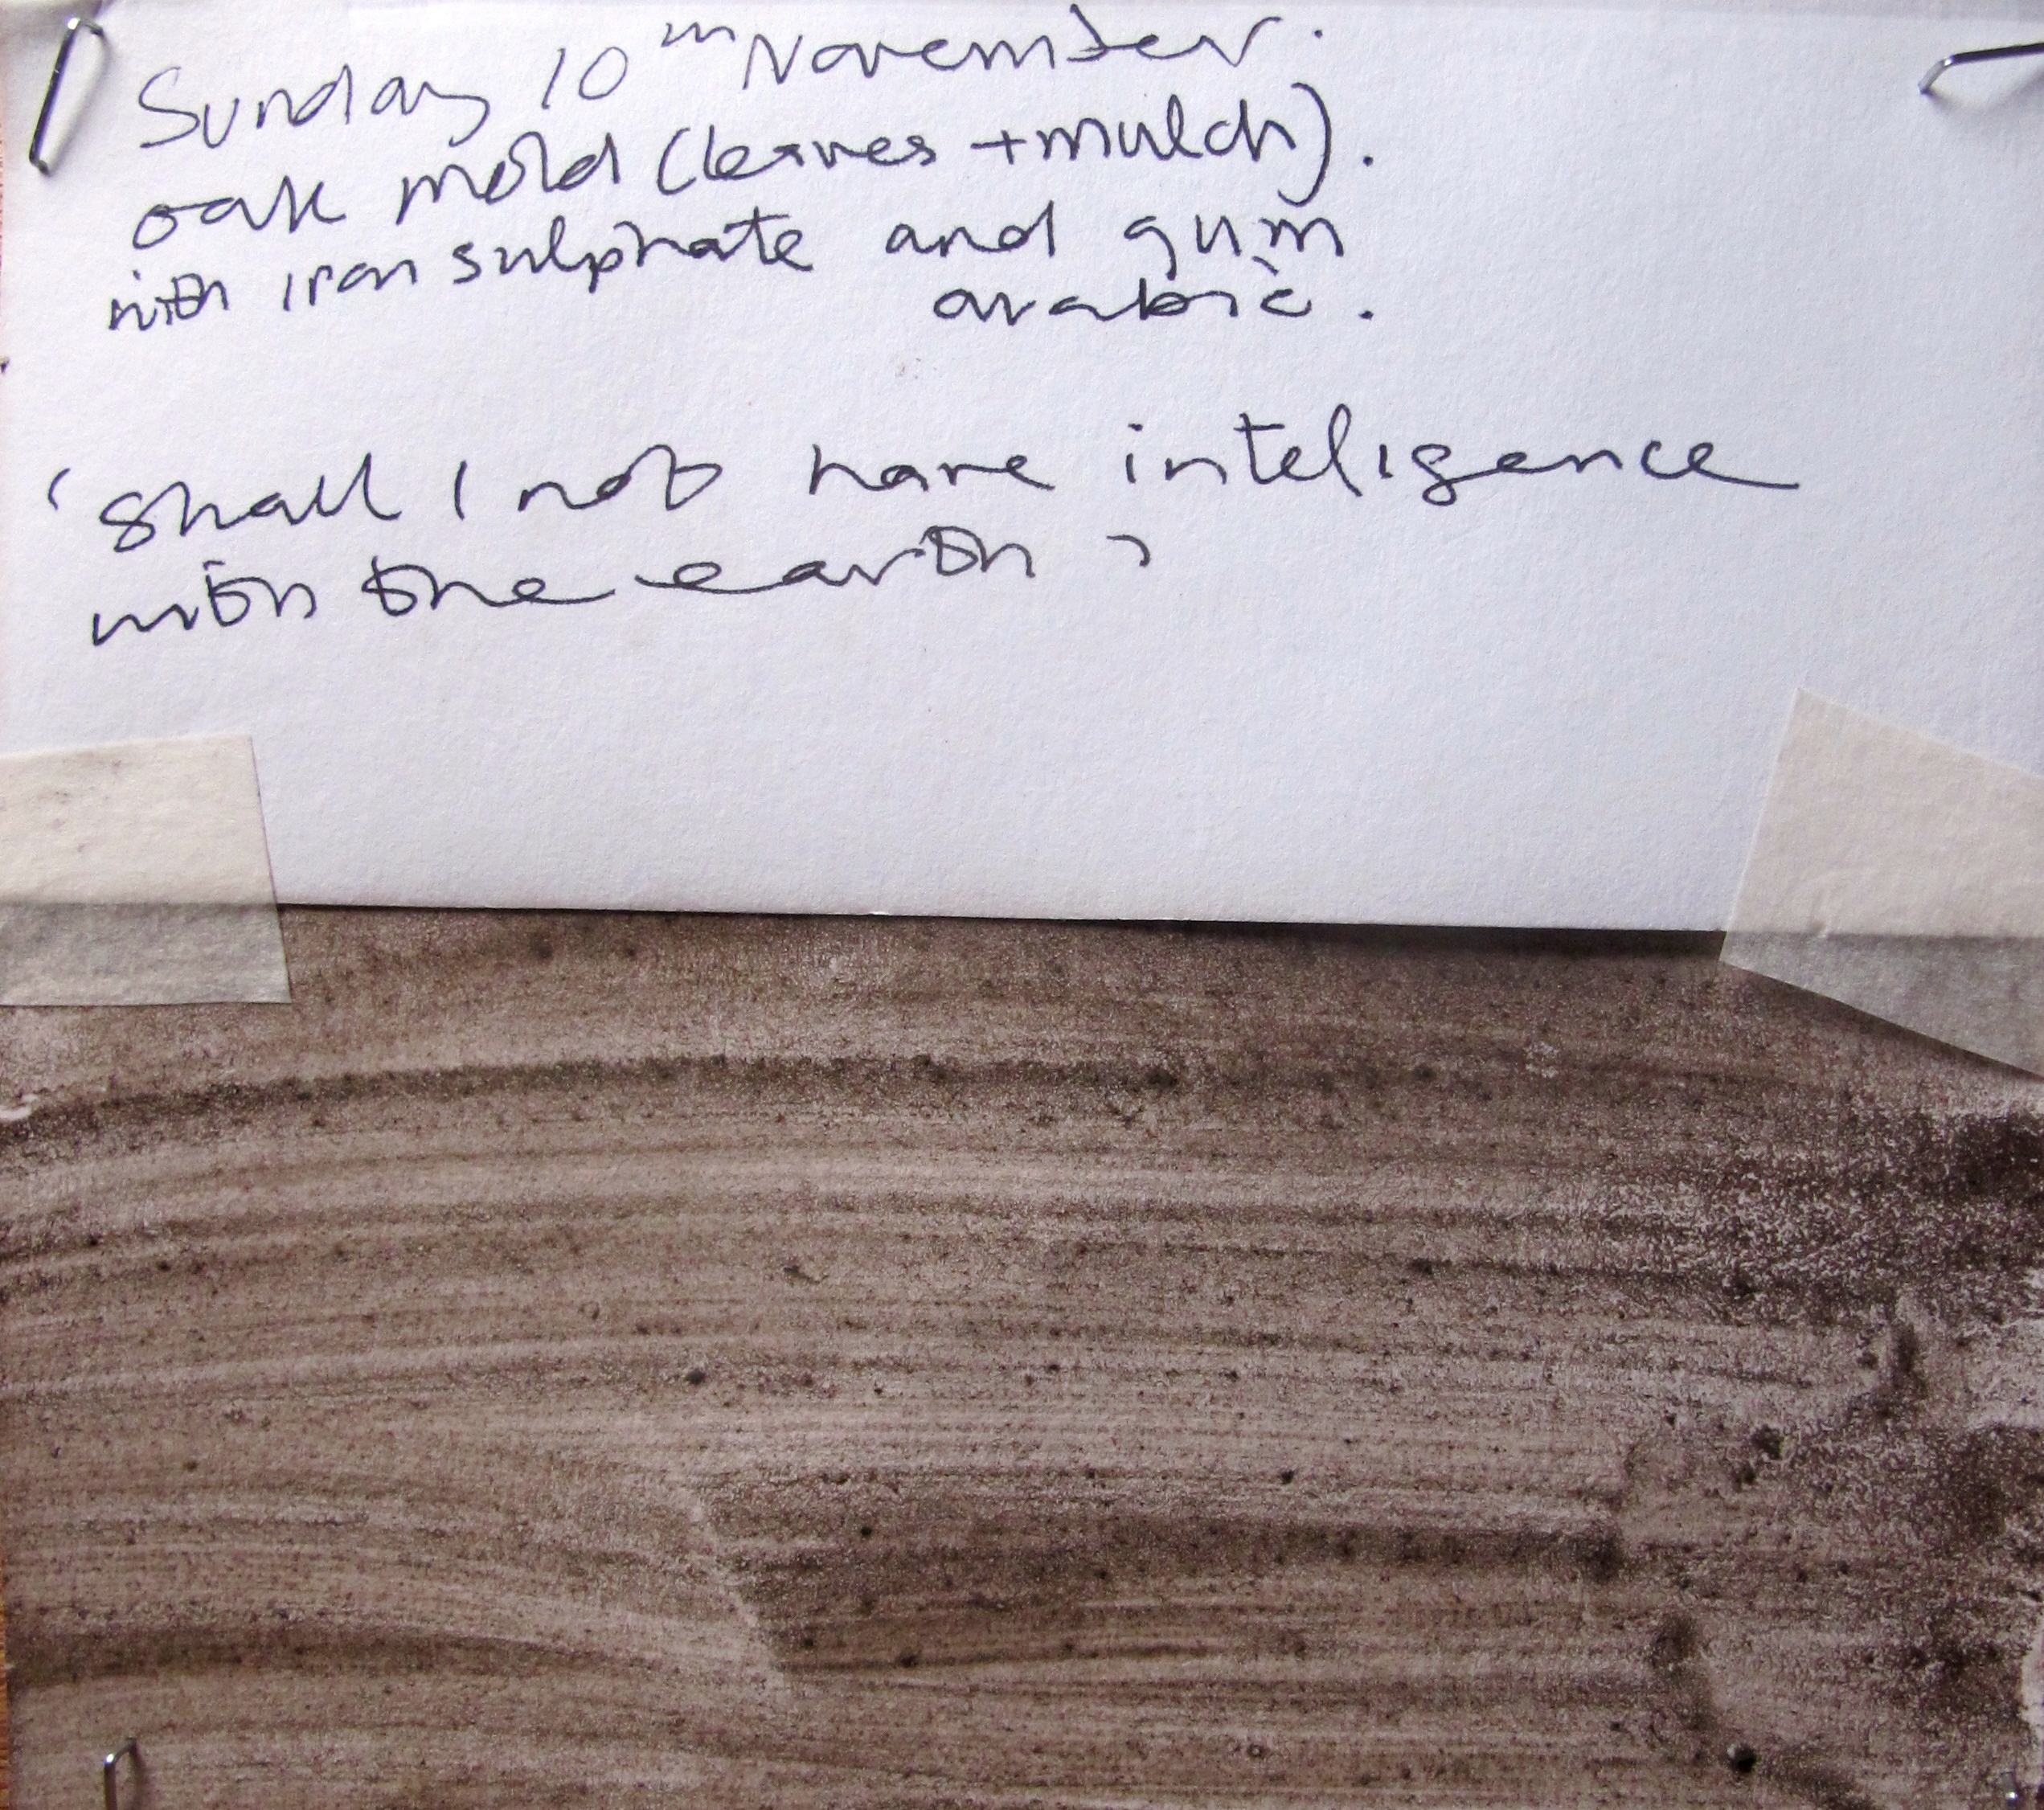 Sunday 10th November.
oak mold (leaves + mulch).
with iron sulphate and gum
arabic.
'Shall I not have inteligence
with the earth'